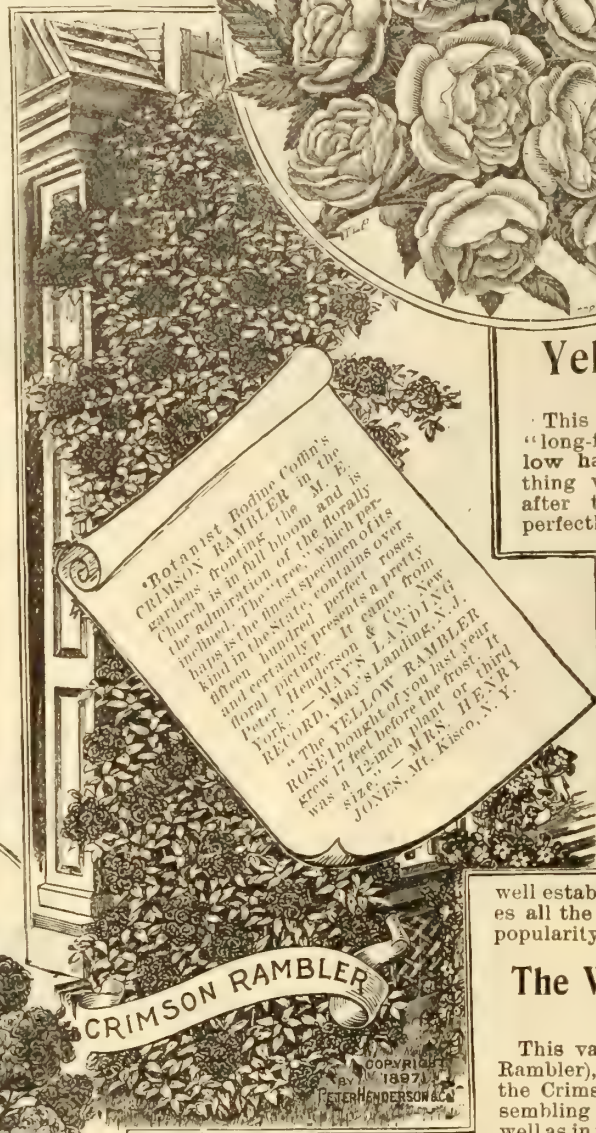 "Botanist Bodine Coffin's
CRIMSON RAMBLER in the
gardens fronting the M. E.
Church is in full bloom and is
the admiration of the florally
inclined. The 'tree,' which per-
haps is the finest specimen of its
kind in the State, contains over
fifteen hundred perfect roses
and certainly presents a pretty
floral picture. It came from
Peter Henderson & Co., New
York." — MAY'S LANDING
RECORD, May's Landing, N. J.
"The YELLOW RAMBLER
ROSE I bought of you last year
grew 17 feet before the frost. It
was a 12-inch plant or third
size." — MRS. HENRY
JONES, Mt. Kisco, N. Y.
Yel
This
"long-f
low ha
thing v
after t
perfectl
well estab
es all the
popularity
The V
This va
Rambler),
the Crims
sembling
well as in
CRIMSON RAMBLER
COPYRIGHT
BY 1897
PETER HENDERSON & Co.